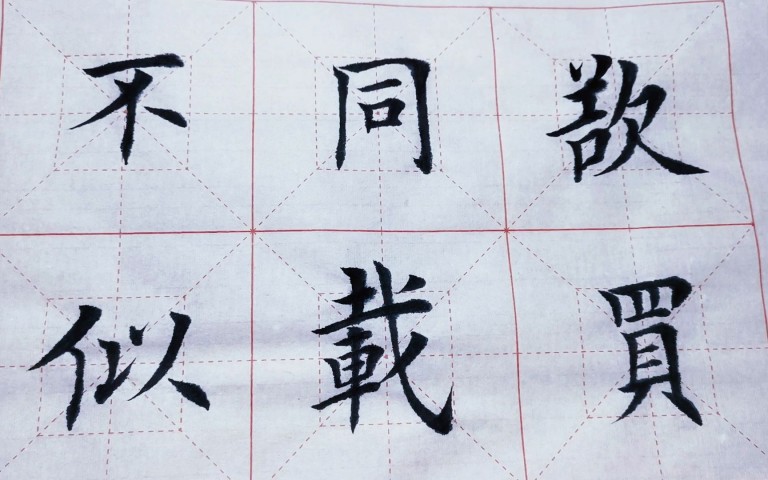 欲買
同載
不似